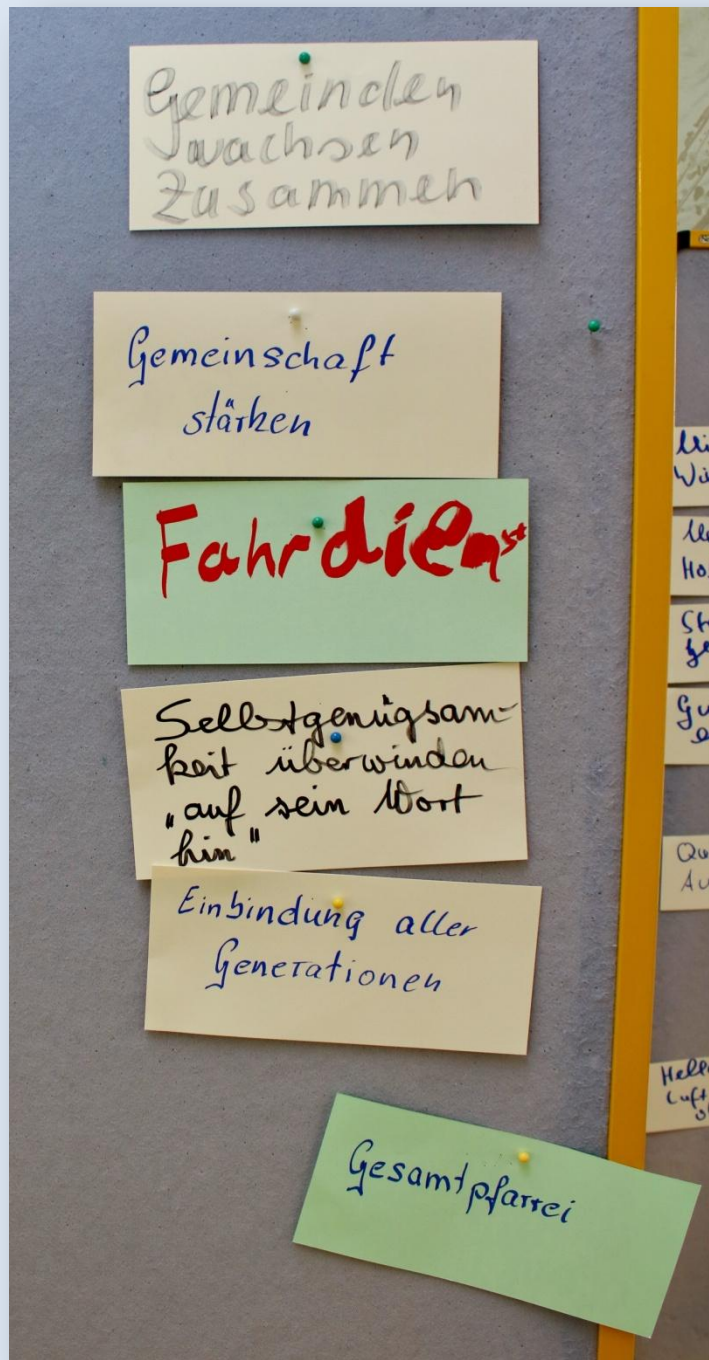 Gemeinden
wachsen
Zusammen
Gemeinschaft
stärken
Fahrdienst
Selbstgenügsam-
keit überwinden
„auf sein Wort
hin"
Einbindung aller
Generationen
Gesamtpfarrei